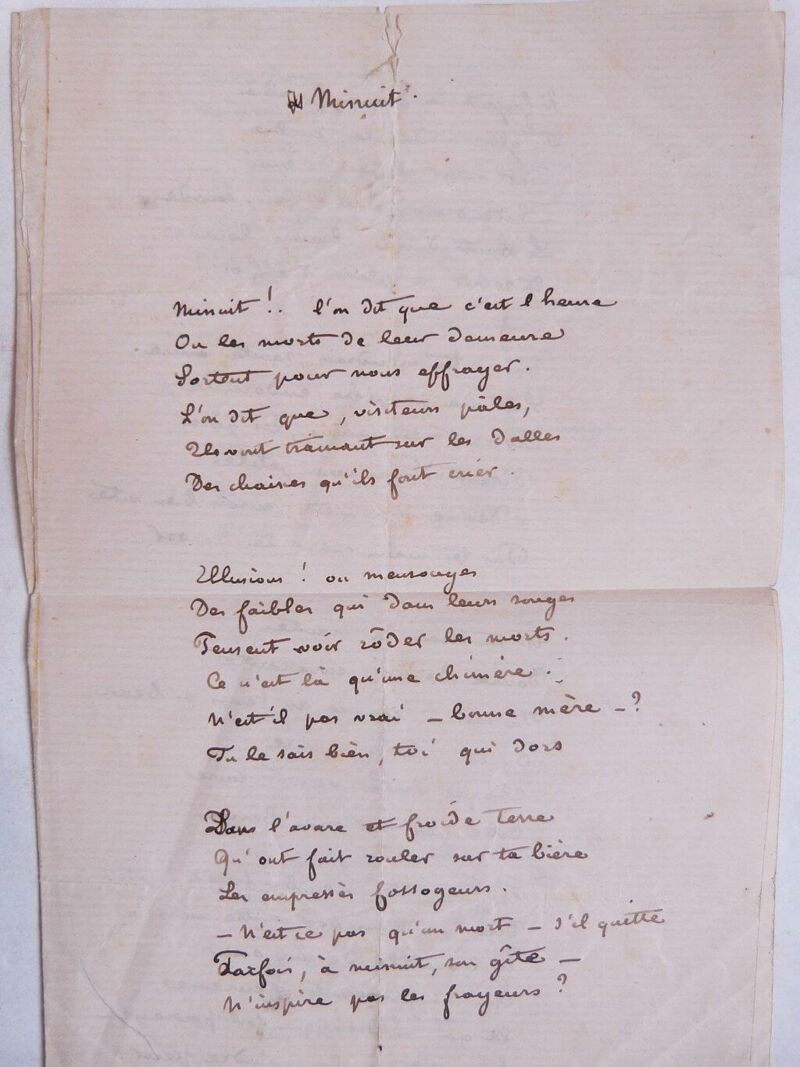 Minuit.
Minuit !.. l'on dit que c'est l'heure
Ou les morts de leur demeure
Sortent pour nous effrayer.
L'on dit que, visiteurs pâles,
Ils vont traînant sur les dalles
Des chaines qu'ils font crier.
Illusions ! ou mensonges
Des faibles qui dans leurs songes
Pensent voir rôder les morts.
Ce n'est là qu'une chimère.
N'est-il pas vrai – bonne mère – ?
Tu le sais bien, toi qui dors
Dans l'avare et froide terre
Qu'ont fait rouler sur ta bière
Les empressés fossoyeurs.
– N'est ce pas qu'un mort – s'il quitte
Parfois, à minuit, son gîte –
N'inspire pas les frayeurs ?